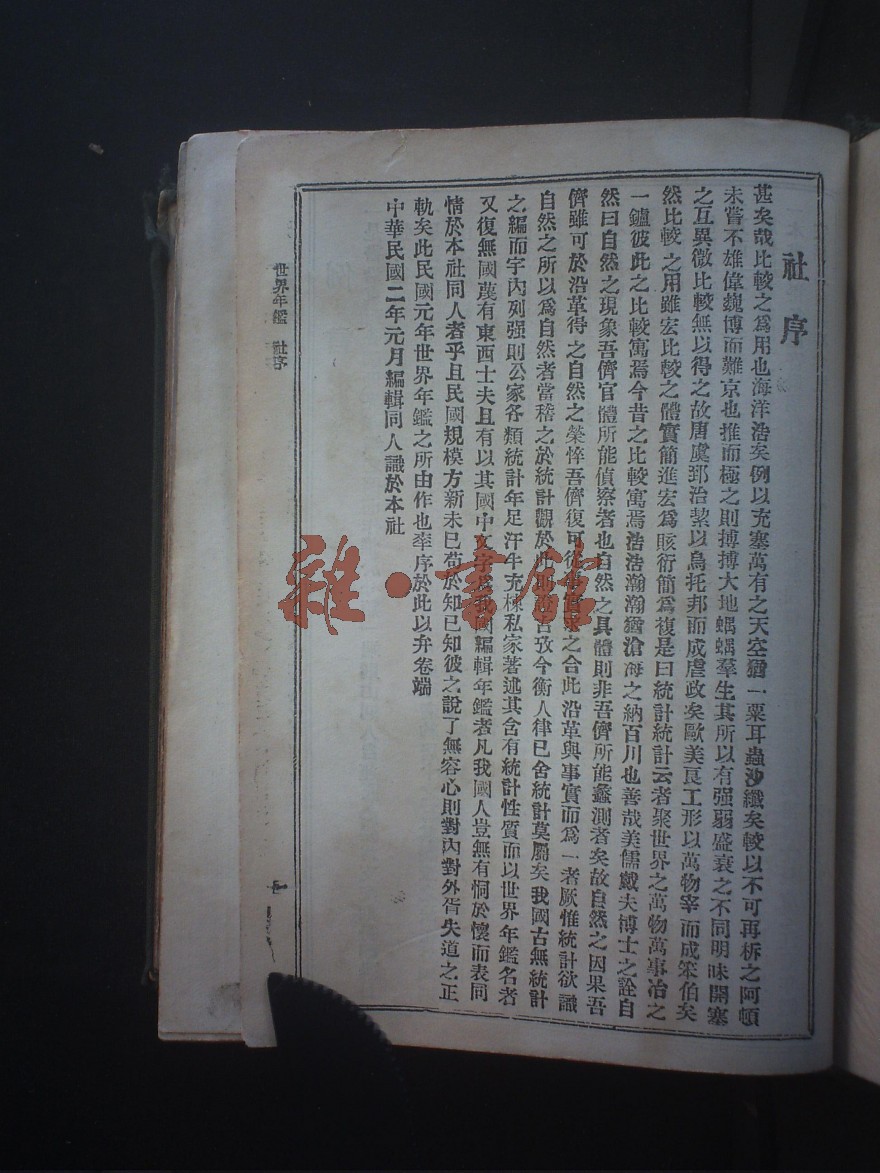 社序
甚矣哉比較之爲用也海洋浩矣例以充塞萬有之天空猶一粟耳蟲沙纖矣較以不可再析之阿頓
未嘗不雄偉巍博而難京也推而極之則摶摶大地蝡蝡羣生其所以有强弱盛衰之不同明昧開塞
之互異微比較無以得之故唐虞郅治絜以烏托邦而成虐政矣歐美良工形以萬物宰而成笨伯矣
然比較之用雖宏比較之體實簡進宏爲賅衍簡爲複是曰統計統計云者聚世界之萬物萬事冶之
一鑪彼此之比較寓焉今昔之比較寓焉浩浩瀚瀚猶滄海之納百川也善哉美儒戴夫博士之詮自
然曰自然之現象吾儕官體所能偵察者也自然之具體則非吾儕所能蠡測者矣故自然之因果吾
儕雖可於沿革得之自然之榮悴吾儕復可從事實求之合此沿革與事實而爲一者厥惟統計欲識
自然之所以爲自然者當稽之於統計觀於此攷今衡人律已舍統計莫屬矣我國古無統計
之編而宇內列强則公家各類統計年足汗牛充棟私家著述其含有統計性質而以世界年鑑名者
又復無國蔑有東西士夫且有以其國中文字爲我國編輯年鑑者凡我國人豈無有恫於懷而表同
情於本社同人者乎且民國規模方新未已苟於知已知彼之說了無容心則對內對外胥失道之正
軌矣此民國元年世界年鑑之所由作也率序於此以弁卷端
中華民國二年元月編輯同人識於本社
世界年鑑 社序
一
雜·書館